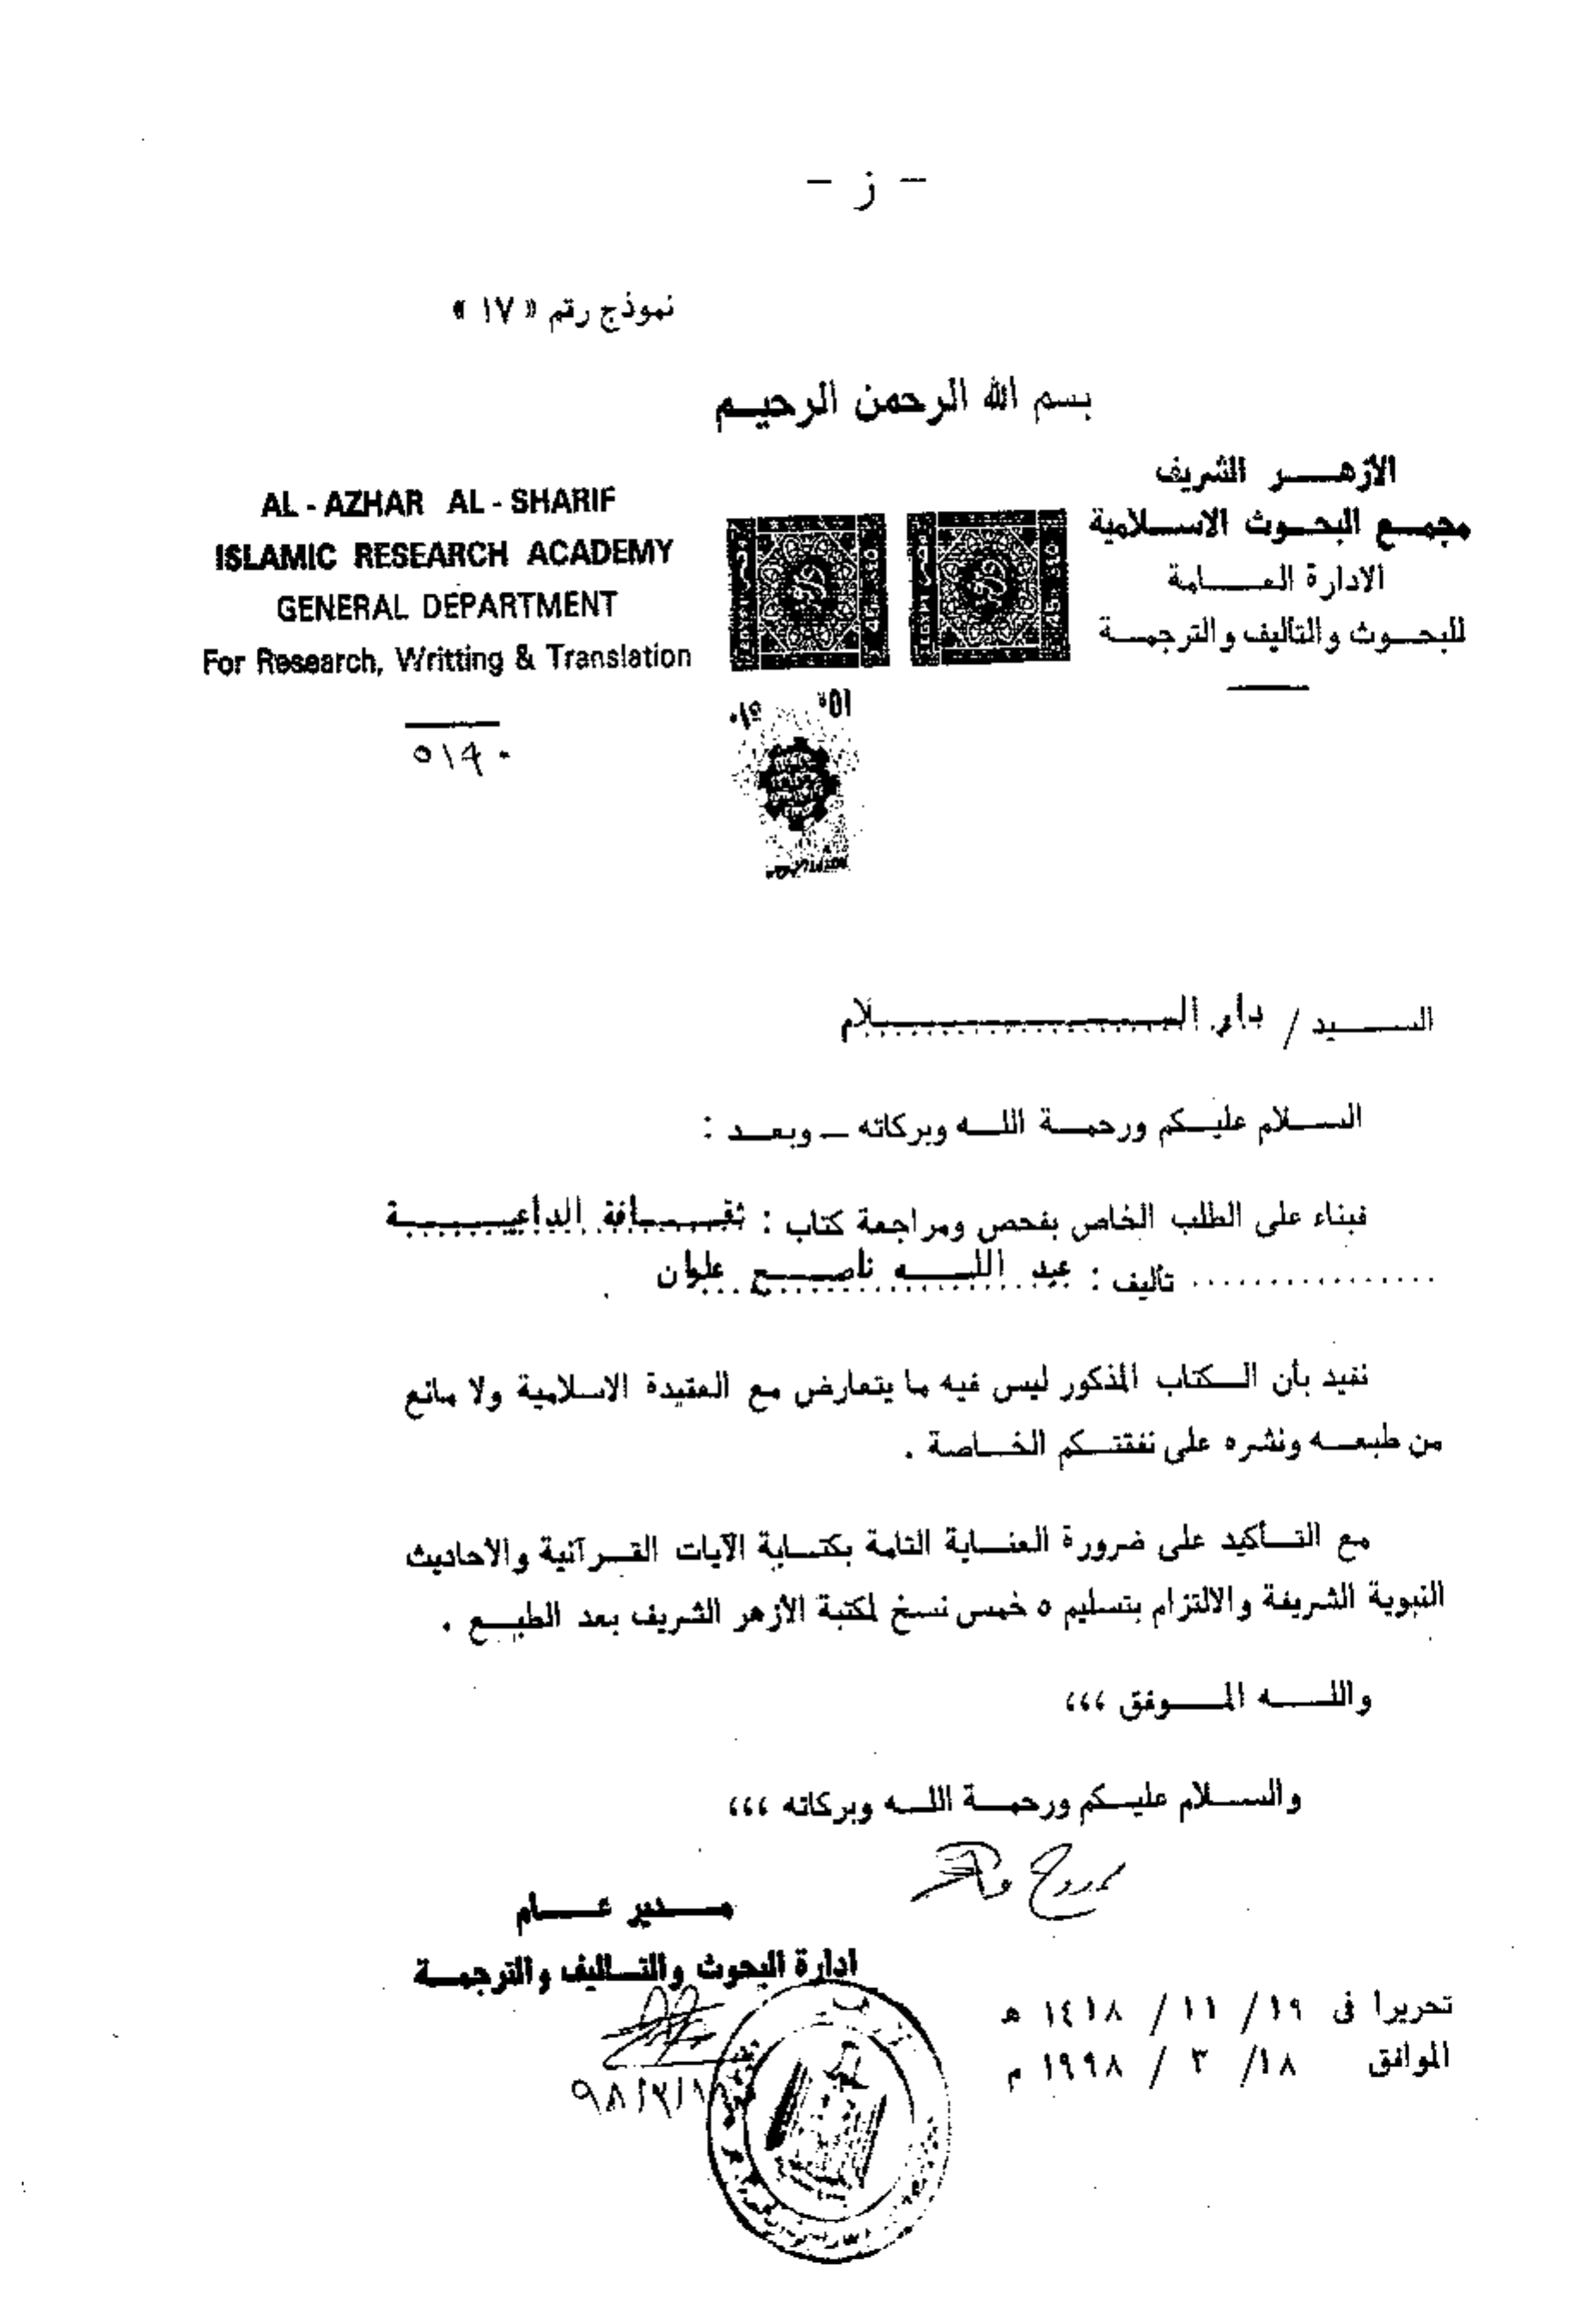 - ز -
نموذج رقم « ١٧ »
بسم الله الرحمن الرحيم
الأزهر الشريف
مجمع البحوث الاسلامية
الادارة العامة
للبحوث والتأليف والترجمة
AL - AZHAR AL - SHARIF
ISLAMIC RESEARCH ACADEMY
GENERAL DEPARTMENT
For Research, Writting & Translation
السيد / دار السلام
السلام عليكم ورحمة الله وبركاته — وبعد :
فبناء على الطلب الخاص بفحص ومراجعة كتاب : ثقافة الداعية
................ تأليف : عبد الله ناصح علوان
نفيد بأن الكتاب المذكور ليس فيه ما يتعارض مع العقيدة الاسلامية ولا مانع
من طبعه ونشره على نفقتكم الخاصة .
مع التأكيد على ضرورة العناية التامة بكتابة الآيات القرآنية والأحاديث
النبوية الشريفة والالتزام بتسليم ٥ خمس نسخ لمكتبة الأزهر الشريف بعد الطبع .
والله الموفق ،،،
والسلام عليكم ورحمة الله وبركاته ،،،
مدير عام
ادارة البحوث والتاليف والترجمة
تحريرا فى ١٩ / ١١ / ١٤١٨ هـ
الموافق ١٨ / ٣ / ١٩٩٨ م